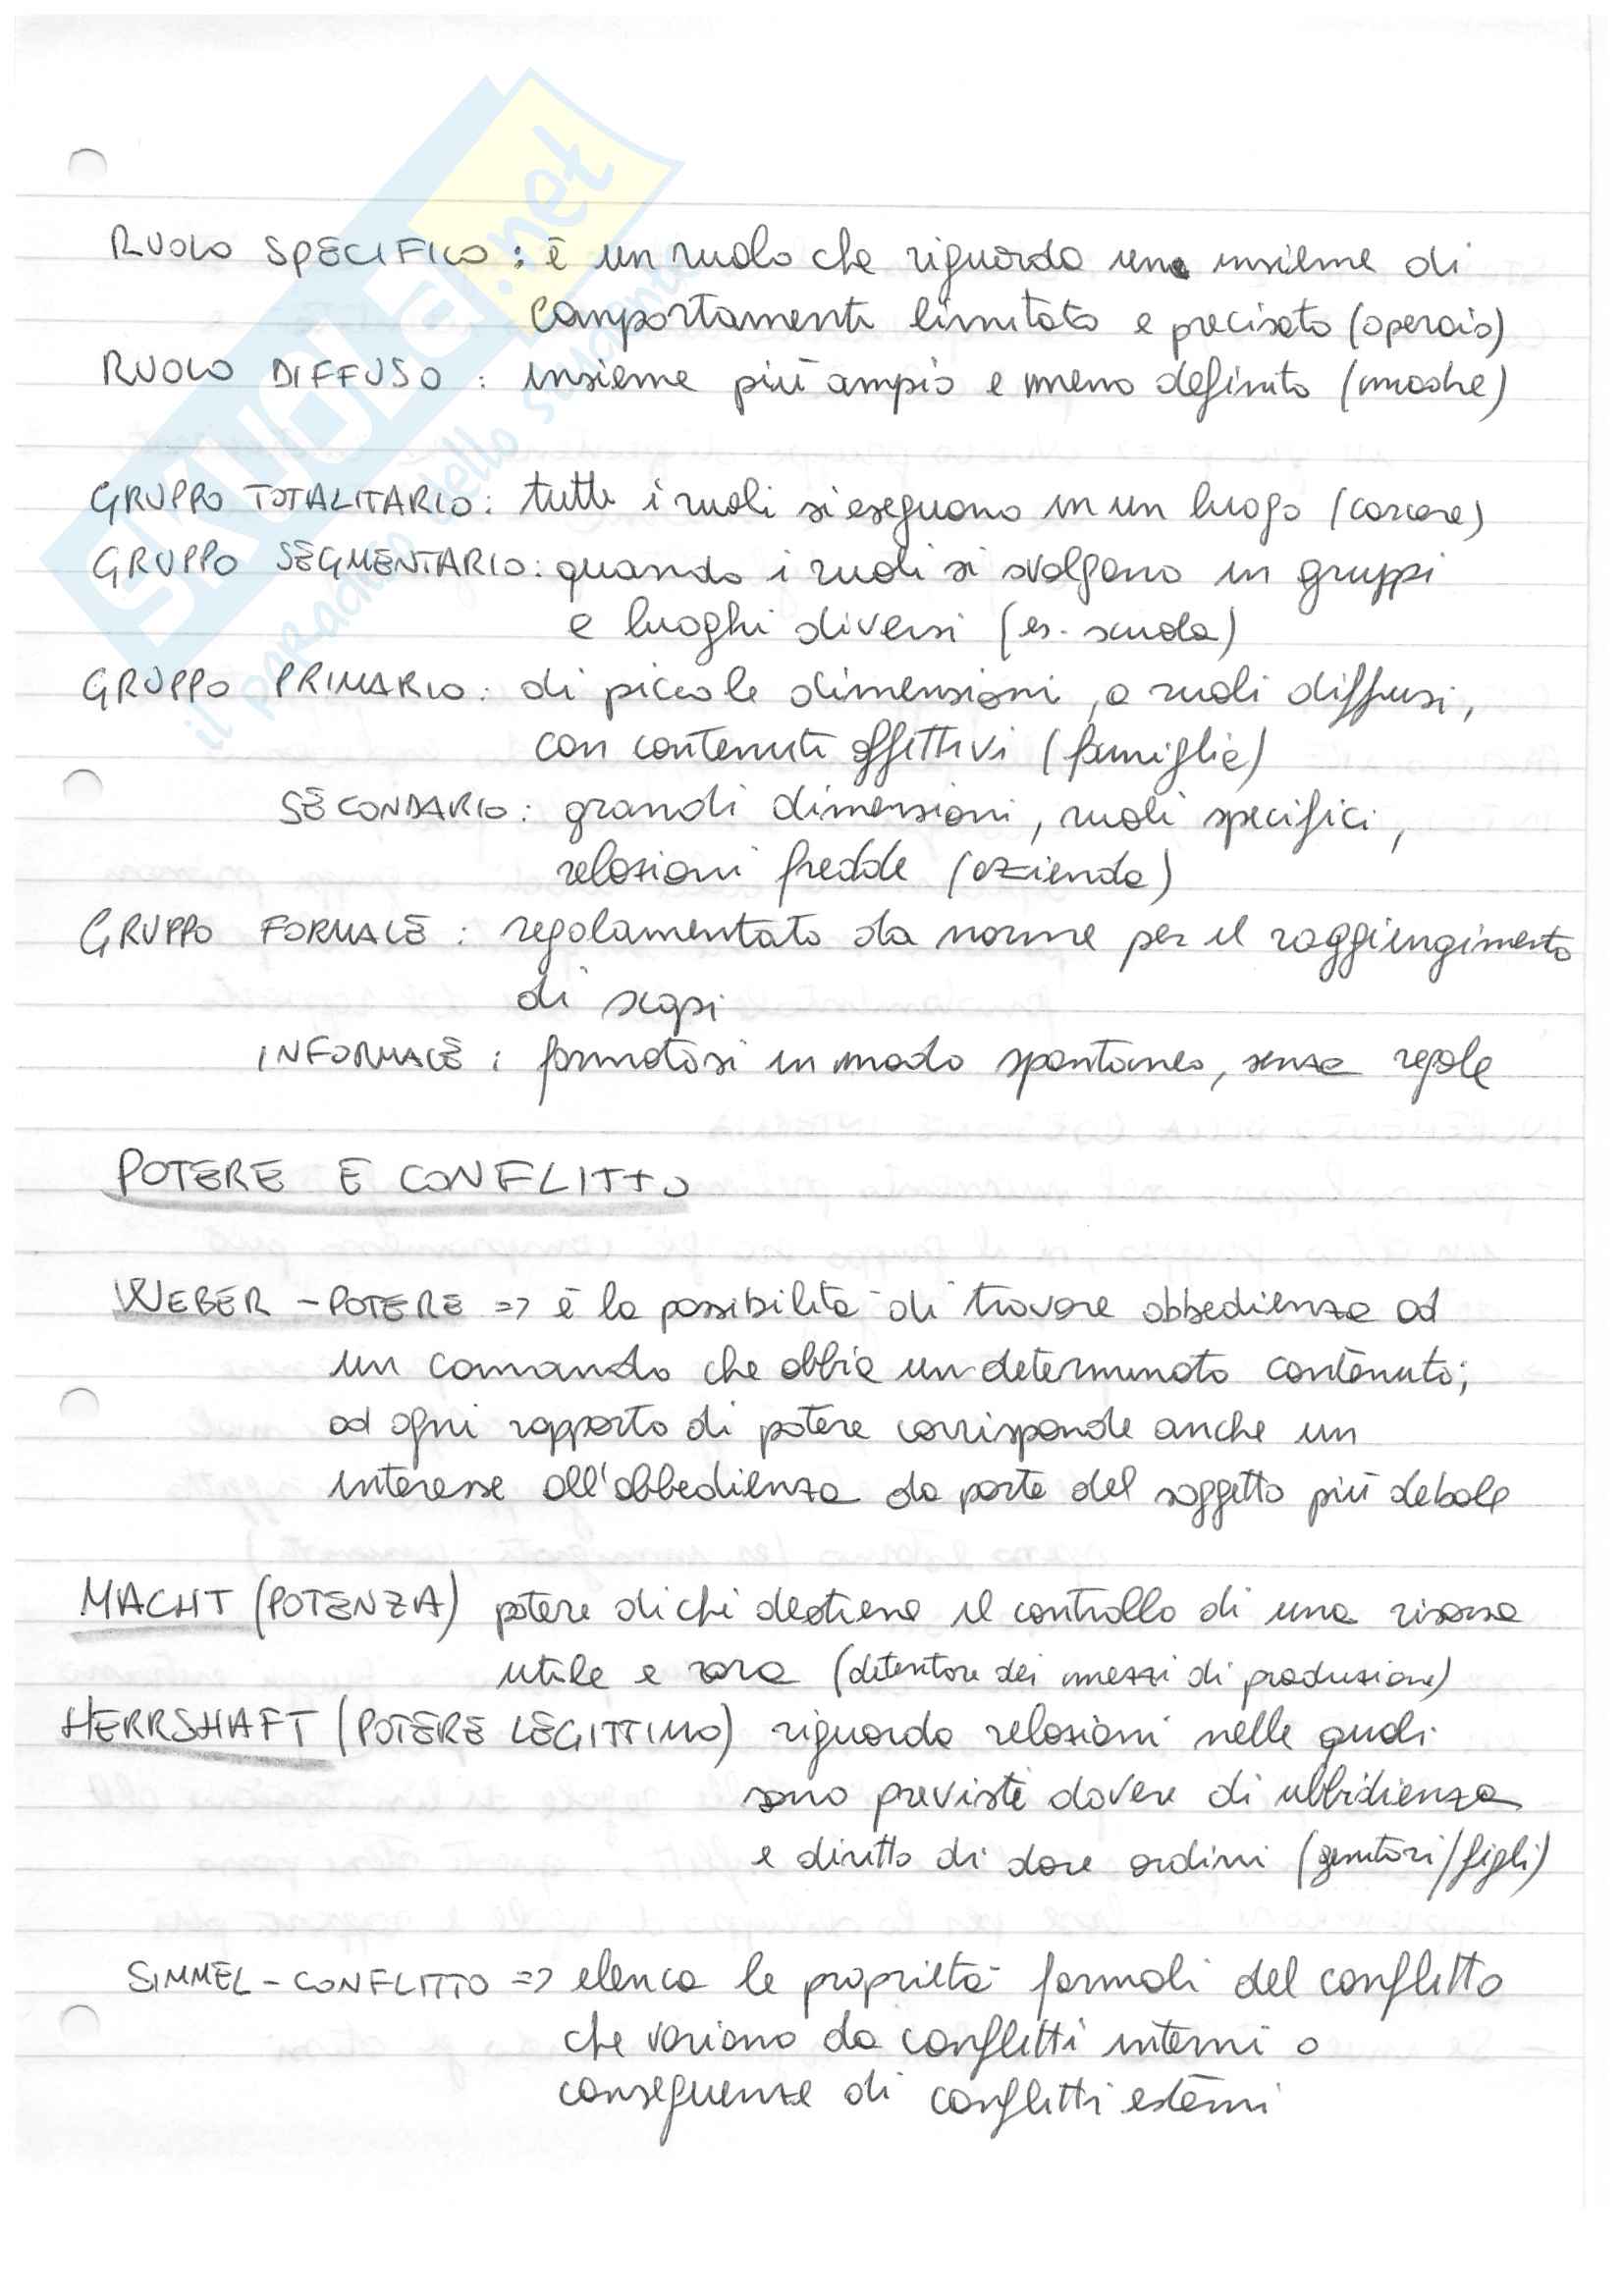 SKUOLA.net
il paradiso dello studente
RUOLO SPECIFICO : è un ruolo che riguarda un insieme di
comportamenti limitato e precisato (operaio)
RUOLO DIFFUSO : insieme più ampio e meno definito (madre)
GRUPPO TOTALITARIO : tutti i ruoli si eseguono in un luogo (carcere)
GRUPPO SEGMENTARIO : quando i ruoli si svolgono in gruppi
e luoghi diversi (es. scuola)
GRUPPO PRIMARIO : di piccole dimensioni, a ruoli diffusi,
con contenuti affettivi (famiglia)
SECONDARIO : grandi dimensioni, ruoli specifici,
relazioni fredde (azienda)
GRUPPO FORMALE : regolamentato da norme per il raggiungimento
di scopi
INFORMALE : formatosi in modo spontaneo, senza regole
POTERE E CONFLITTO
WEBER - POTERE => è la possibilità di trovare obbedienza ad
un comando che abbia un determinato contenuto;
ad ogni rapporto di potere corrisponde anche un
interesse all'obbedienza da parte del soggetto più debole
MACHT (POTENZA) potere di chi deotiene il controllo di una risorsa
utile e rara (detentore dei mezzi di produzione)
HERRSHAFT (POTERE LEGITTIMO) riguarda relazioni nelle quali
sono previsti dovere di ubbidienza
e diritto di dare ordini (genitori/figli)
SIMMEL - CONFLITTO => elenca le proprietà formali del conflitto
che variano da conflitti interni o
conseguenze di conflitti esterni